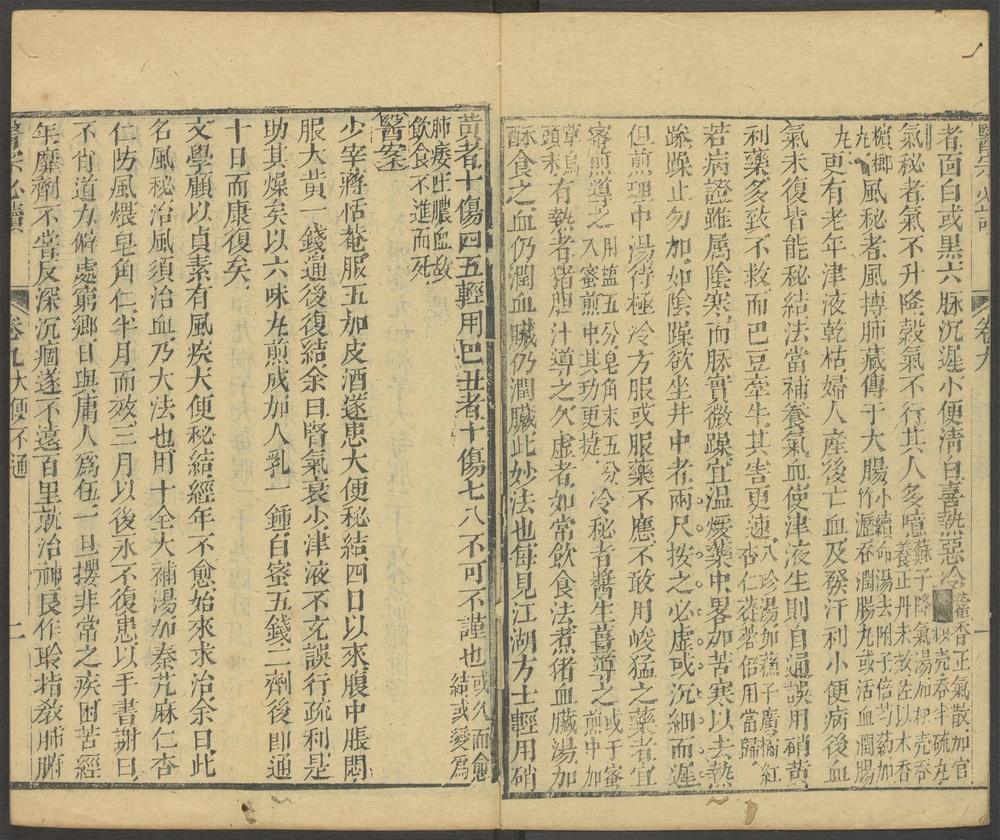 醫宗必讀 卷九 一
者面白或黑六脉沉遲小便清白喜熱惡冷藿香正氣散加官桂枳壳吞半硫丸
氣秘者氣不升降穀氣不行其人多噫蘇子降氣湯加枳壳吞養正丹未效佐以木香檳榔
風秘者風搏肺藏傳于大腸小續命湯去附子倍芍藥加竹瀝吞潤腸丸或活血潤腸丸
更有老年津液乾枯婦人產後亡血及發汗利小便病後血
氣未復皆能秘結法當補養氣血使津液生則自通誤用硝黃
利藥多致不救而巴豆牽牛其害更速八珍湯加蘇子廣橘紅杏仁蓯蓉倍用當歸
若病證雖屬陰寒而脉實微躁宜温煖藥中畧加苦寒以去熱
躁躁止勿加如陰躁欲坐井中者兩尺按之必虛或沉細而遲
但煎理中湯待極冷方服或服藥不應不敢用峻猛之藥者宜
蜜煎導之用鹽五分皂角末五分入蜜煎中其功更捷冷秘者醬生薑導之或于蜜煎中加草烏頭末
有熱者猪胆汁導之久虛者如常飲食法煮猪血臟湯加
酥食之血仍潤血臟仍潤臟此妙法也每見江湖方士輕用硝
黃者十傷四五輕用巴丑者十傷七八不可不謹也或久而愈結或變為
肺痿吐膿血或飲食不進而死
醫案
少宰蔣恬菴服五加皮酒遂患大便秘結四日以來腹中脹悶
服大黃一錢通後復結余曰腎氣衰少津液不充誤行疏利是
助其燥矣以六味丸煎成加人乳一鍾白蜜五錢二劑後即通
十日而康復矣
文學顧以貞素有風疾大便秘結經年不愈始來求治余曰此
名風秘治風須治血乃大法也用十全大補湯加秦艽麻仁杏
仁防風煨皂角仁半月而效三月以後永不復患以手書謝曰
不肖道力僻處窮鄉日與庸人為伍一旦攖非常之疾困苦經
年靡劑不嘗反深沉痼遂不遠百里就治神良作聆指教肺腑
醫宗必讀 卷九 大便不通 二